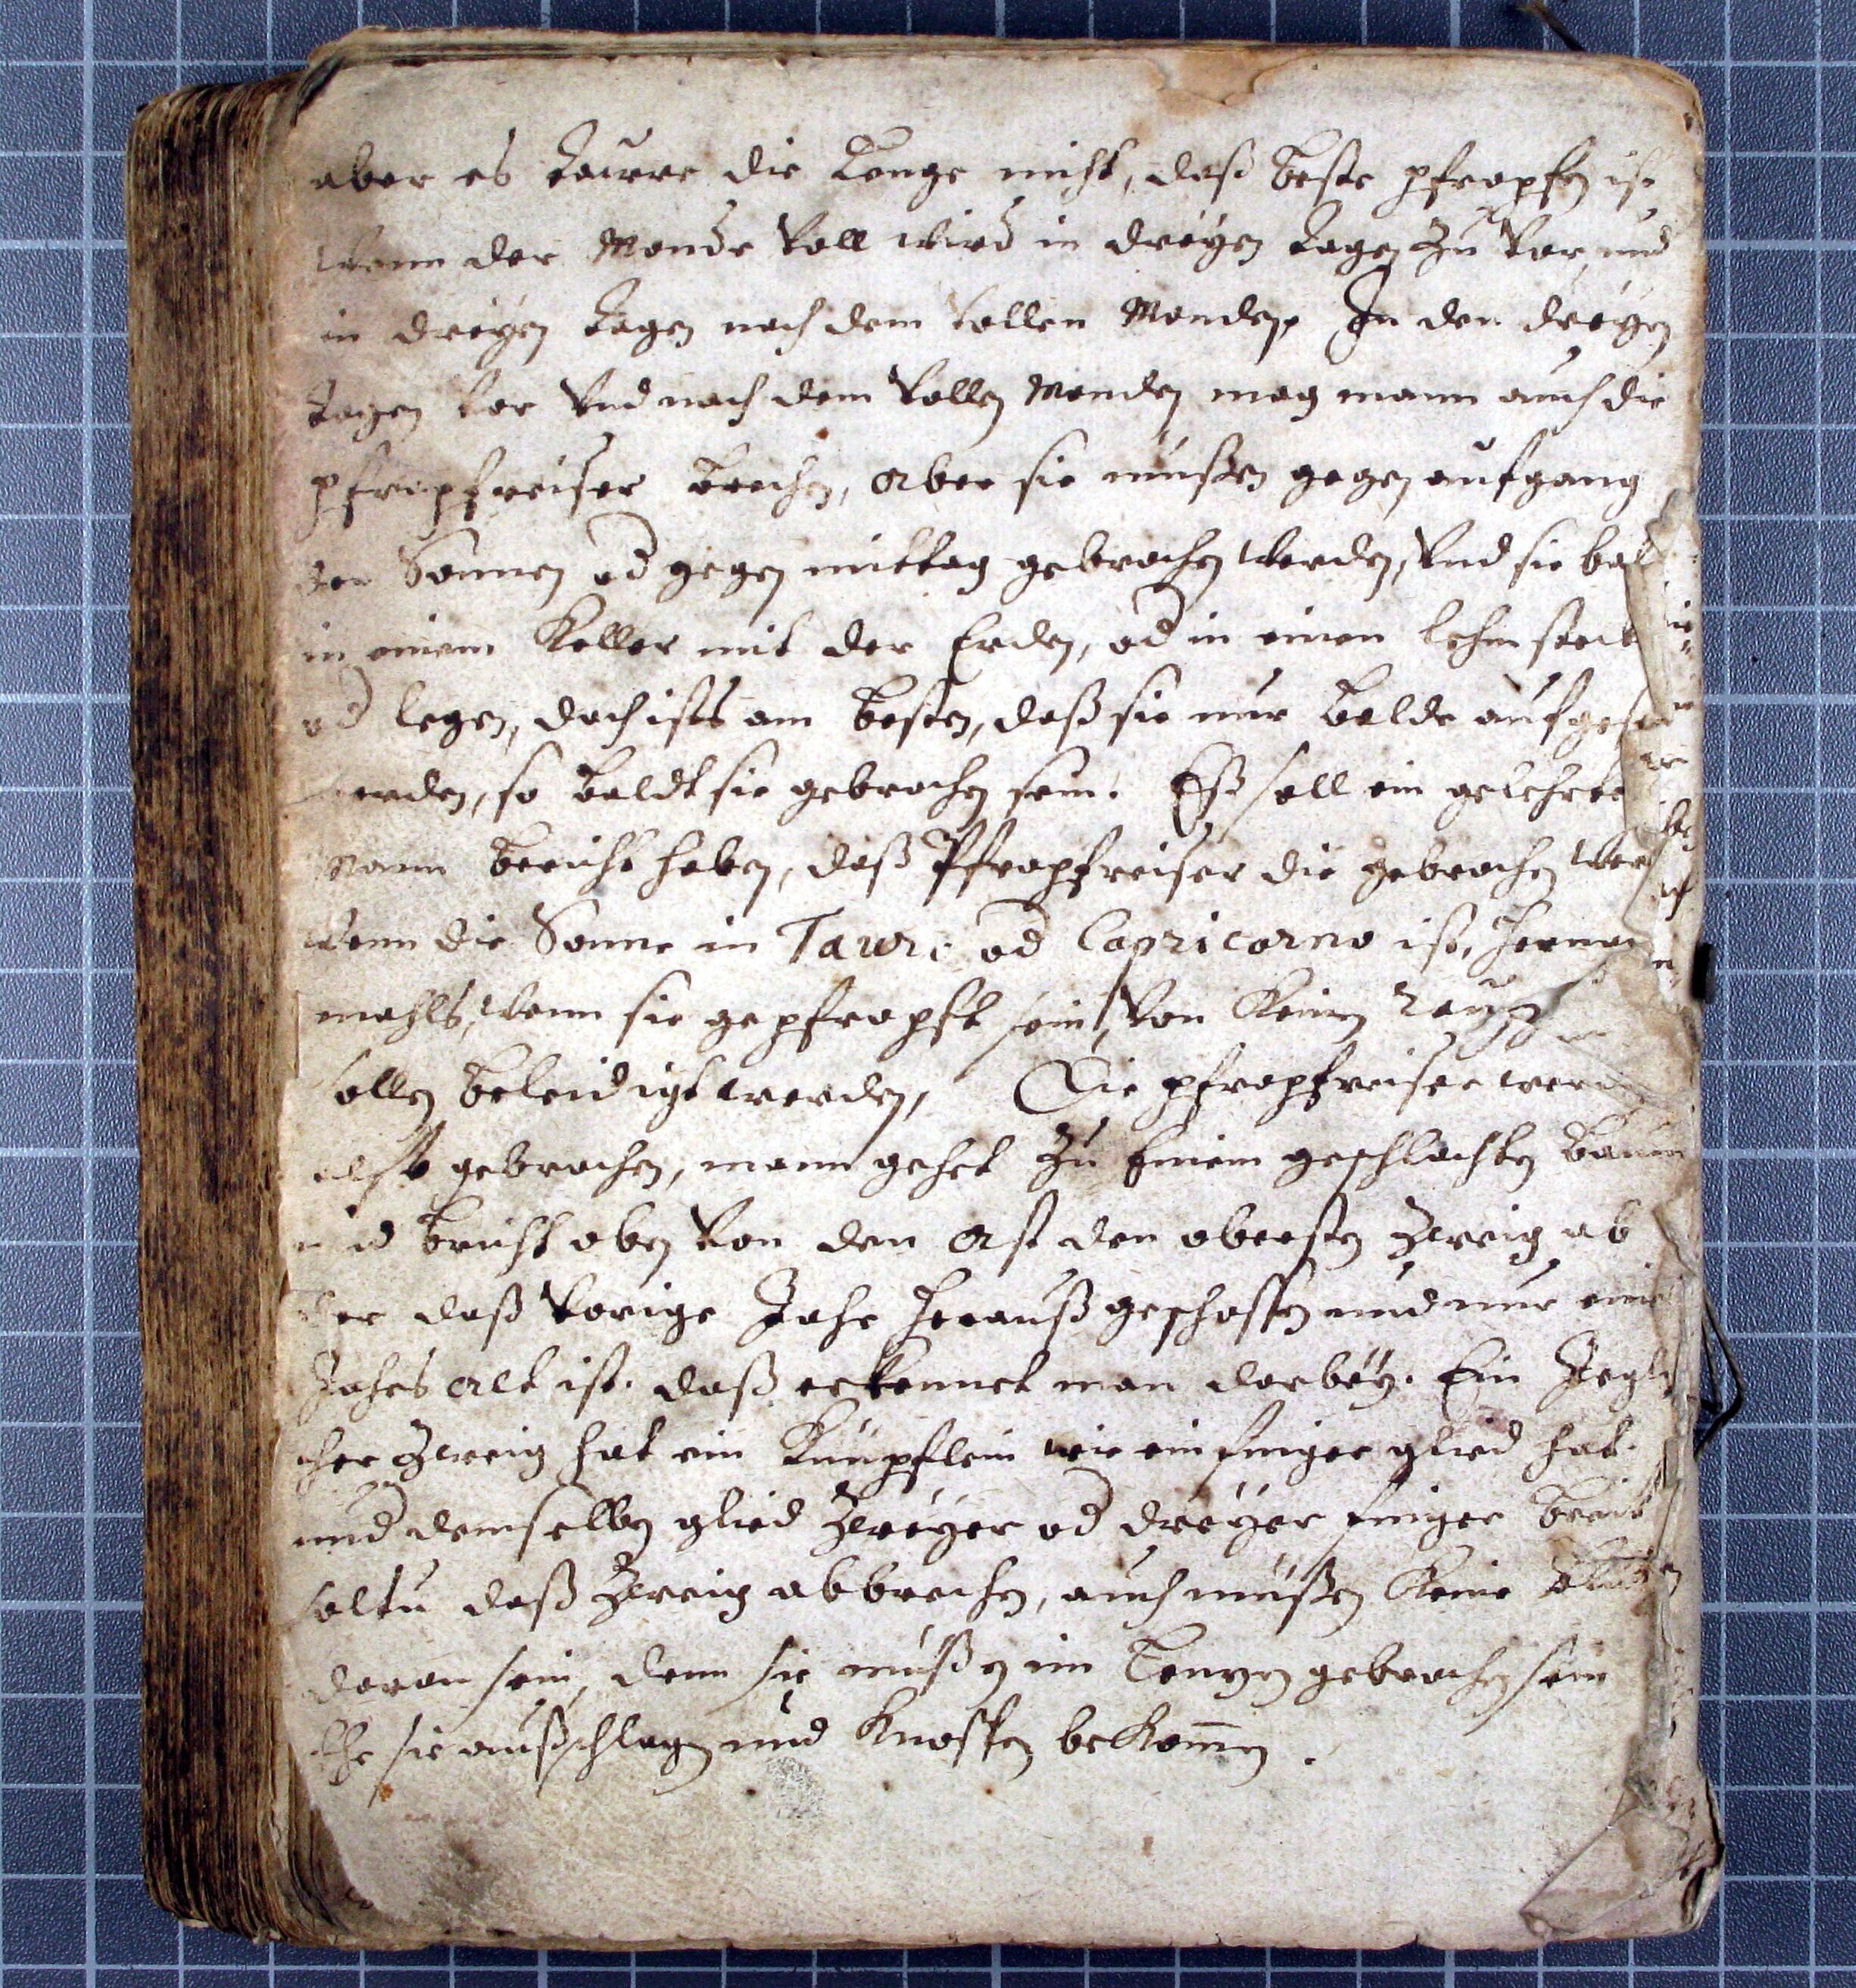 aber es daure die Lenge nicht, daß beste pfropfen ist
wenn der Monde voll wird in dreÿen tagen zu vor, und
in dreÿen tagen nach dem vollen Monden, In den dreÿen
tagen vor vnd nach dem vollen Monden mag mann auch die
pfropfreiser brechen, aber sie müßen gegen aufgang
der Sonnen od gegen mittag gebrochen werden, vnd sie
in einem Keller mit der Erden, od in einen lehm
od legen, doch ists am besten, daß sie nur balde
werden, so baldt sie gebrochen sein. Eß soll ein gelehrter
Mann bericht haben, daß Pfropfreiser die gebrochen
wenn die Sonne in Tauro od Capricorno ist,
mahls, wenn sie gepfropft sein, von keinen
sollen beleidigt werden, Die pfropfreiser
also gebrochen, mann gehet zu Einem geschlachten baum
und bricht oben von den Ast den obersten zweig ab
der daß vorige Jahr herauß geschoßen und nur eines
Jahrs alt ist. daß erkennet man darbeÿ. Ein Jegli
cher zweig hat ein Knüpflein wie ein finger glied hat.
und demselben glied zweÿer od dreÿer finger breit
soltu daß zweig abbrechen, auch müßen Keine
daran sein, denn sie müßen im Lentzen gebrochen sein
Ehe sie außschlagen und Knospen bekom̄en.